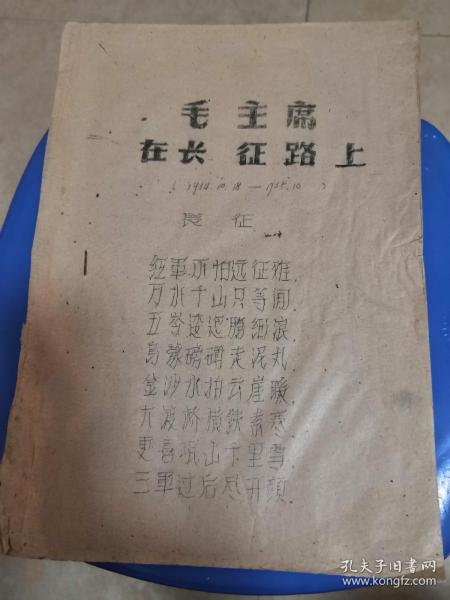 毛主席
在长征路上
(1934.10.18—1935.10)
长征
红軍不怕远征难,
万水千山只等闲,
五岺逶迤腾细浪,
烏蒙磅礴走泥丸
金沙水拍云崖暖,
大渡桥横鉄索寒,
更喜岷山千里雪,
三軍过后尽开顔,
孔夫子旧书网
www.kongfz.com